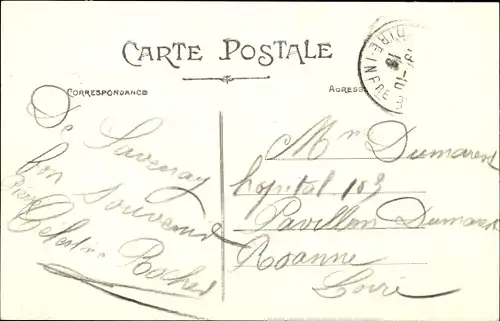 CARTE POSTALE
CORRESPONDANCE
ADRESSE
De Savenay
bon souvenir
Célestin Rocher
Mr Dumarest
hopital 103
Pavillon Dumarest
Roanne
Loire